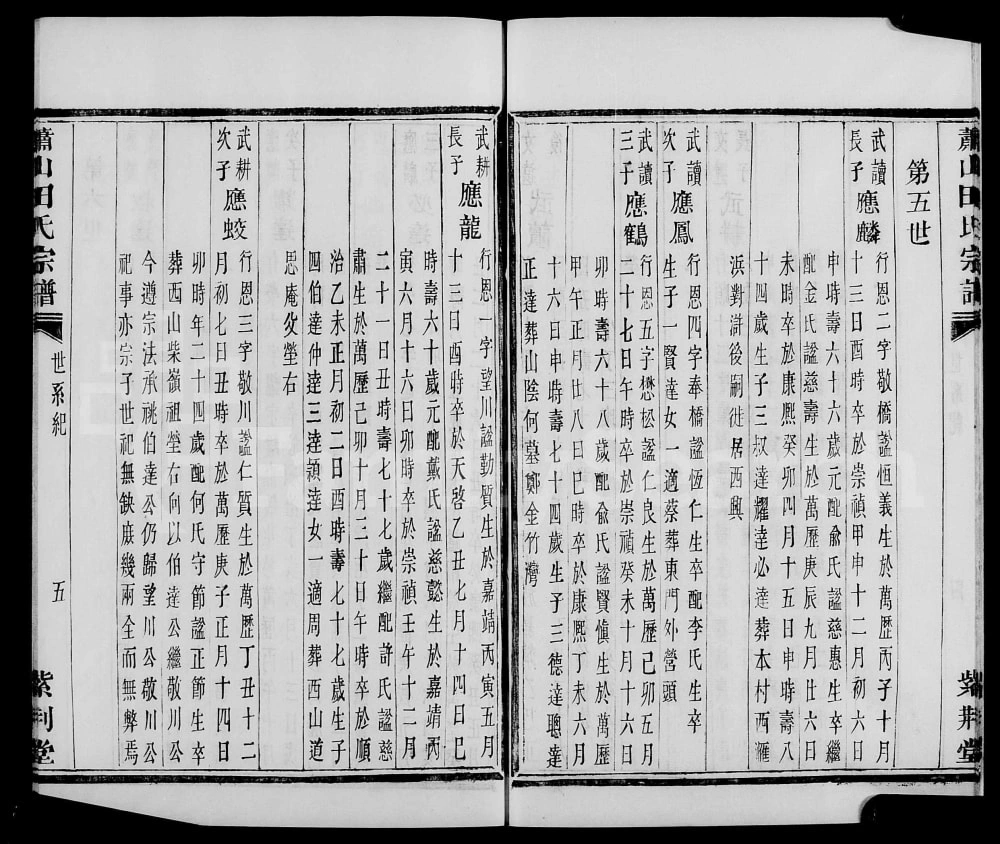 蕭山田氏宗譜
紫荆堂
第五世
武讀
長子 應麟
行恩二字敬橋諡恒義生於萬歷丙子十月
十三日酉時卒於崇禎甲申十二月初六日
申時壽六十六歲元配俞氏諡慈惠生卒繼
配金氏諡慈壽生於萬歷庚辰九月廿六日
未時卒於康熙癸卯四月十五日申時壽八
十四歲生子三叔達耀達必達葬本村西滙
浜對滸後嗣徙居西興
武讀
次子 應鳳
行恩四字奉橋諡恆仁生卒配李氏生卒
生子一賢達女一適蔡葬東門外營頭
武讀
三子 應鶴
行恩五字懋松諡仁良生於萬歷己卯五月
二十七日午時卒於崇禎癸未十月十六日
卯時壽六十八歲配俞氏諡賢愼生於萬歷
甲午正月廿八日巳時卒於康熙丁未六月
十六日申時壽七十四歲生子三德達聰達
正達葬山陰何墓鄭金竹灣
武耕
長子 應龍
行恩一字望川諡勤質生於嘉靖丙寅五月
十三日酉時卒於天啓乙丑七月十四日巳
時壽六十歲元配戴氏諡慈懿生於嘉靖丙
寅六月十六日卯時卒於崇禎壬午十二月
二十一日丑時壽七十七歲繼配許氏諡慈
肅生於萬歷己卯十月三十日午時卒於順
治乙未正月初二日酉時壽七十七歲生子
四伯達仲達三達頴達女一適周葬西山道
思庵父塋右
武耕
次子 應蛟
行恩三字敬川諡仁質生於萬歷丁丑十二
月初七日丑時卒於萬歷庚子正月十四日
卯時年二十四歲配何氏守節諡正節生卒
葬西山柴嶺祖塋右向以伯達公繼敬川公
今遵宗法承祧伯達公仍歸望川公敬川公
祀事亦宗子世祀無缺庶幾兩全而無弊焉
蕭山田氏宗譜
世系紀
五
紫荆堂